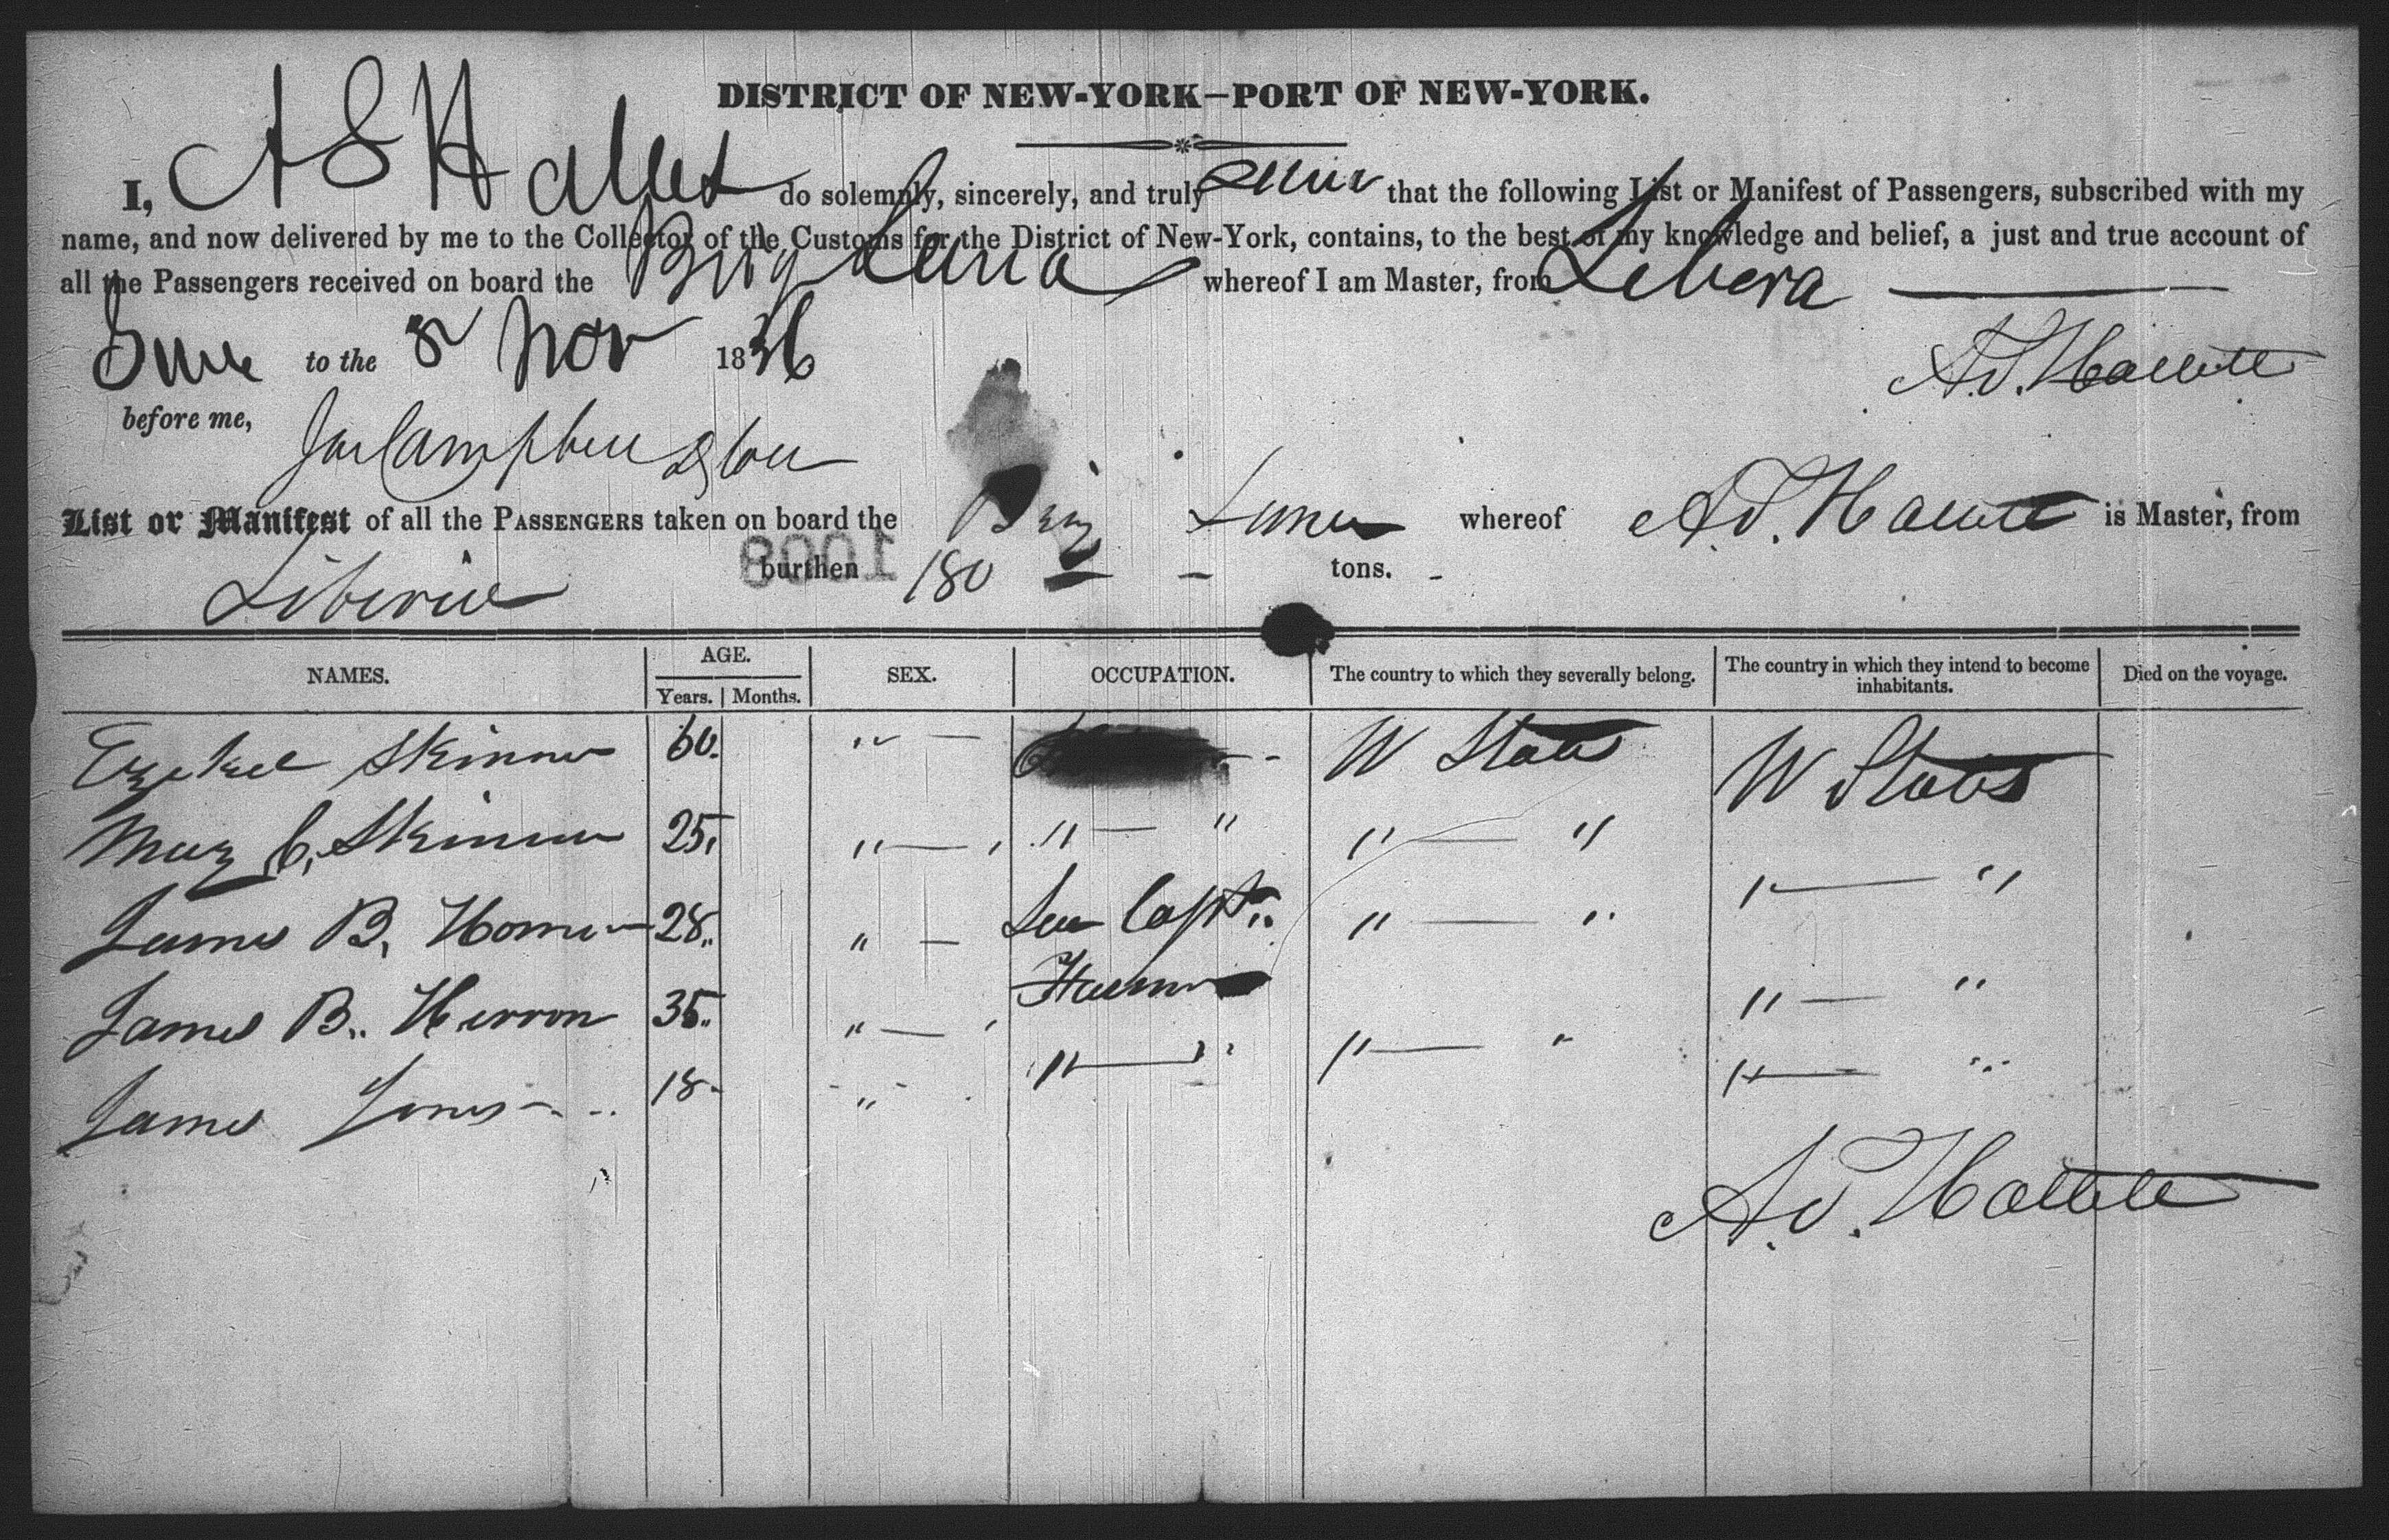 DISTRICT OF NEW-YORK—PORT OF NEW-YORK.
I, A S Hallet do solemnly, sincerely, and truly that the following List or Manifest of Passengers, subscribed with my
name, and now delivered by me to the Collector of the Customs for the District of New-York, contains, to the best of my knowledge and belief, a just and true account of
all the Passengers received on board the Brig Luna whereof I am Master, from Libera
to the 8 Nov 1836
A. S. Hallett
before me,
Campbell
List or Manifest of all the PASSENGERS taken on board the Brig Luna whereof A. S. Hallett is Master, from
Liberia burthen 180 tons.
1008
NAMES. AGE. SEX. OCCUPATION. The country to which they severally belong. The country in which they intend to become inhabitants. Died on the voyage.
Years. Months.
Ezekiel Skinner 60. " — U States U States
Mary C. Skinner 25, " — " — " " — " " — "
James B. Homer 28.. " — Sea Capt.. " — " " — "
James B.. Herron 35.. " — Farmer " — " " — "
James Jones 18 " " — " " — "
A. S. Hallett